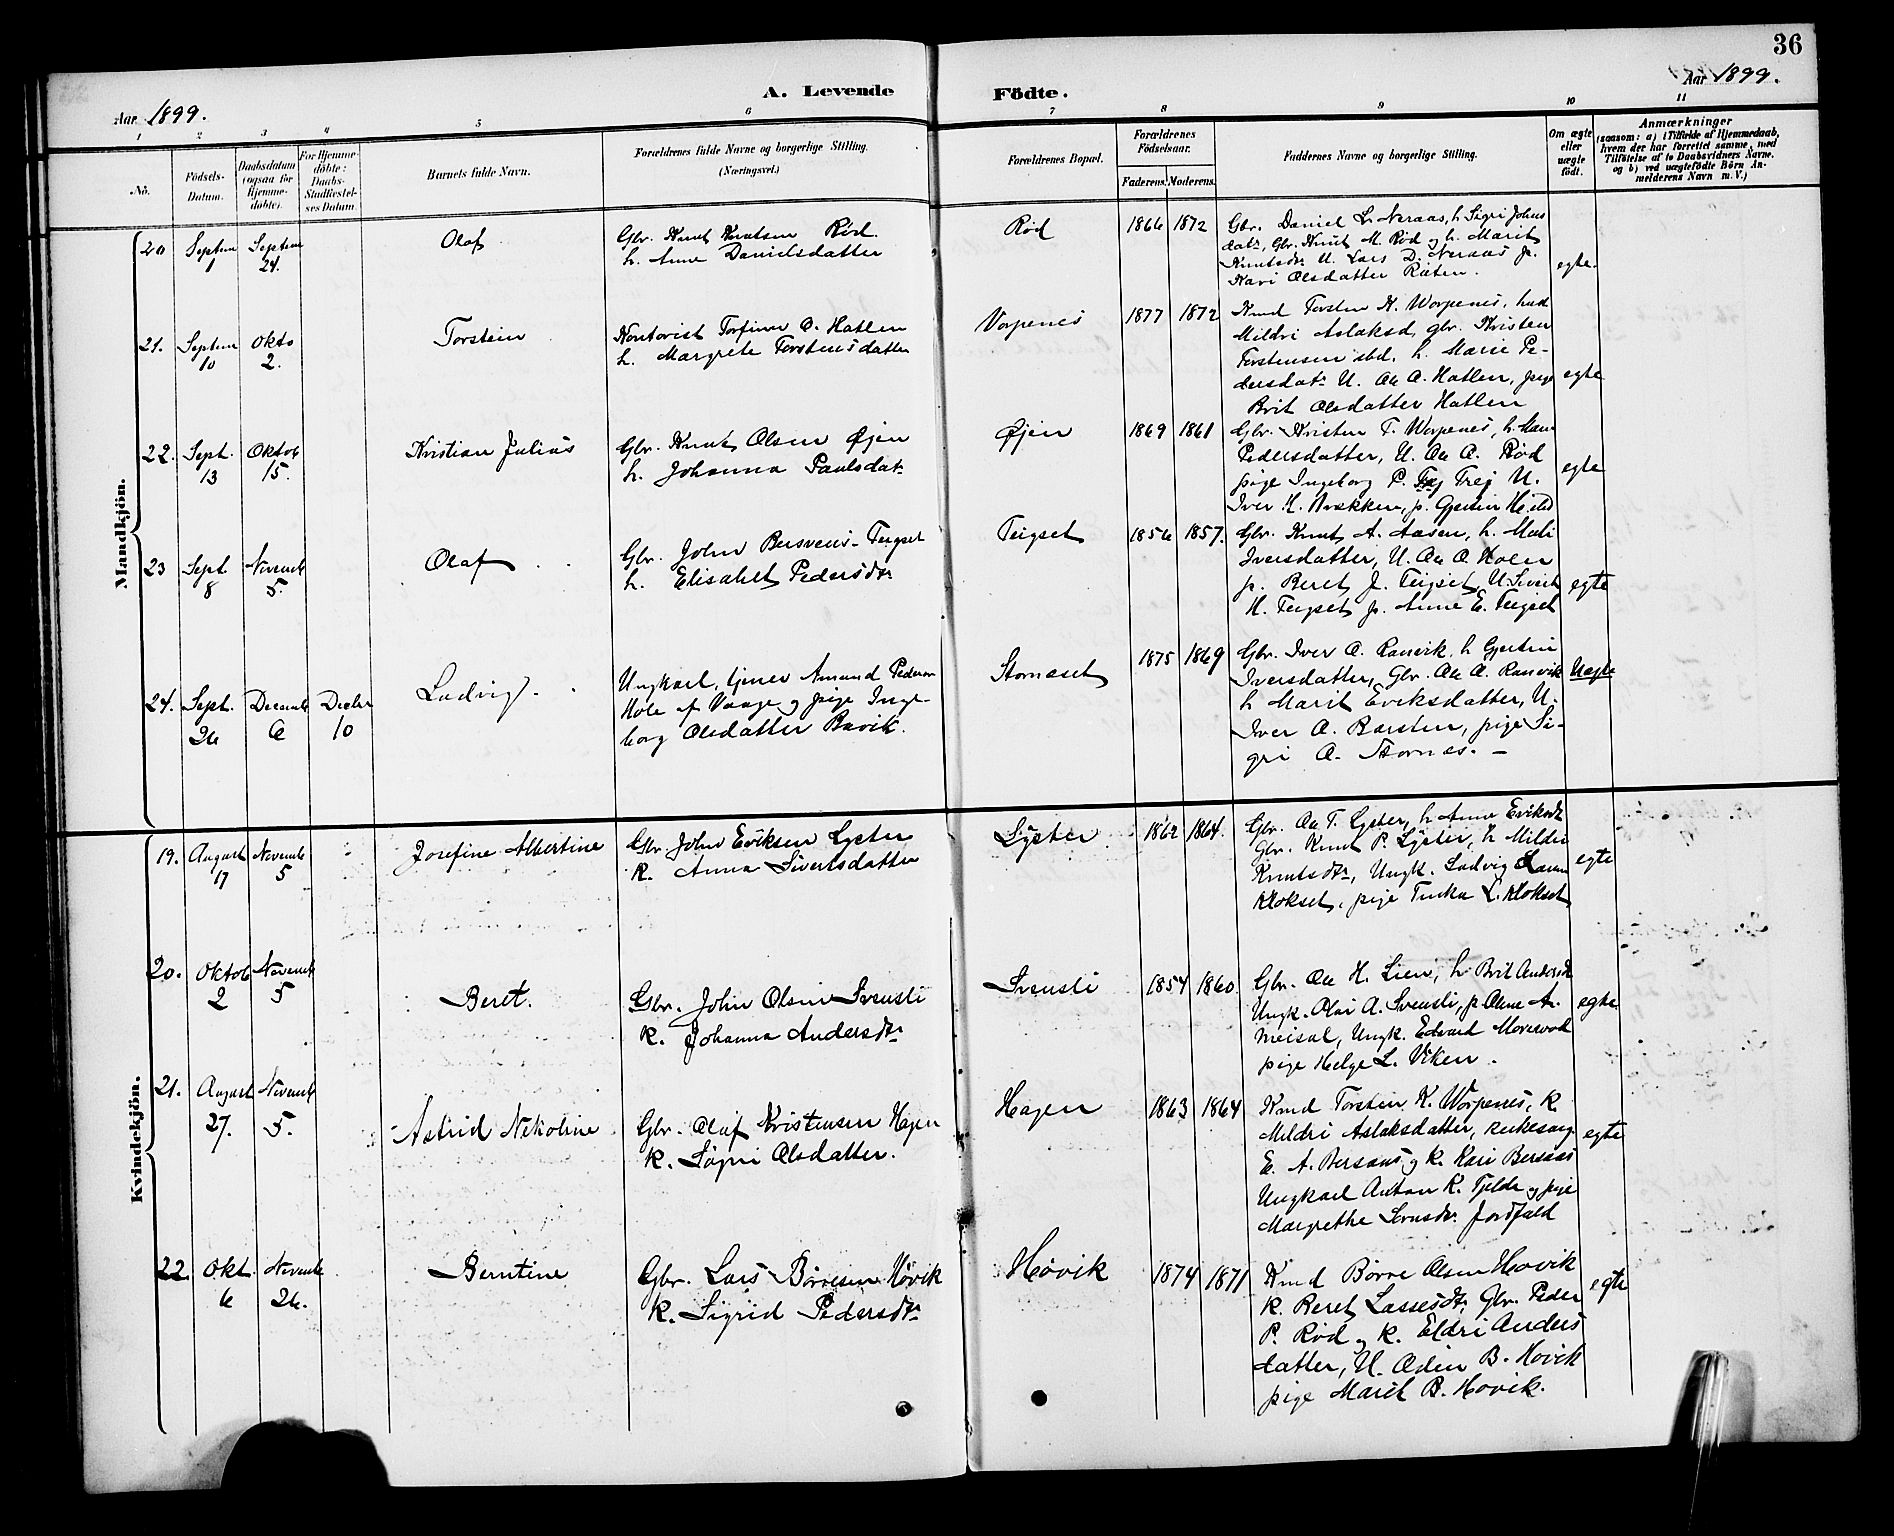 36
Aar 1899.
A. Levende Födte.
Aar 1899.
1 2 3 4 5 6 7 8 9 10 11
No.
Födsels-Datum.
Daabsdatum (ogsaa for Hjemmedöbte).
For Hjemmedöbte: Daabs-Stadfæstelses Datum.
Barnets fulde Navn.
Forældrenes fulde Navne og borgerlige Stilling.
(Næringsvei.)
Forældrenes Bopæl.
Forældrenes Födselsaar.
Faderens. Moderens.
Faddernes Navne og borgerlige Stilling.
Om ægte eller uægte födt.
Anmærkninger
(saasom: a) i Tilfælde af Hjemmedaab, hvem der har forrettet samme, med Tilföielse af to Daabsvidners Navne, og b) ved uægtefödte Börn Anmelderens Navn m. V.)
Mandkjön.
20 Septem 1 Septem 24. Olaf
Gbr. Knut Knutsen Rød
h. Anne Danielsdatter
Rød 1866 1872
Gbr. Daniel L. Neraas, h. Sigri Johns
dat., Gbr. Knut M. Rød og h. Marit
Knutsdr. U. Lars D. Neraas p.
Kari Olsdatter
egte.
21. Septem 10 Okto 2. Torstein
Kontorist Torfinn O. Hatlen
h. Margrete Torstensdatter
Vorpenes 1877 1872
Kmd Torsten K. Worpenes, hust
Mildri Aslaksd, gbr. Kristen
Torstensen sbd. h. Marie Pe-
dersdatr. U. Ole O. Hatlen, pige
Brit Olsdatter Hatlen
egte
22. Sept. 13 Oktob 15. Kristian Julius
Gbr. Knut Olsen Øjen
h. Johanna Paulsdat.
Øjen 1869 1861
Gbr. Kristen T. Worpenes, h. Mari
Pedersdatter, U. Ole O. Rød
pige Ingeborg P. Trej U.
Iver K. Brekken, p. Gjertin
egte
23 Sept 8 Novemb 5. Olaf
Gbr. John Bersvens. Teigset
h. Elisabet Pedersdtr
Teigset 1856 1857.
Gbr. Knut A. Aasen, h. Mali
Iversdatter, U. Ole O. Holen
p. Beret J. Teigset, U. Sivert
H. Teigset p. Anne E. Teigset
egte
24. Sept. 26 Decemb 6 Decbr 10 Ludvig.
Ungkarl, tjener Amund Pedersen
Hole af Vaage og pige Inge-
borg Olsdatter Buvik.
Stornæset 1875 1869
Gbr. Iver O. Ranvik, h Gjertin
Iversdatter, Gbr. Ole O. Ranvik
h Marit Eriksdatter, U.
Iver A. Barsten, pige Si-
gri O. Stornes. –
Uegte
Kvindekjön.
19. August 17 Novemb 5 Josefine Albertine
Gbr. John Eriksen Lyster
K. Anna Sivertsdatter
Lÿster 1862 1864.
Gbr. Ole T. Lyster, h Anne Eriksdt
Gbr. Knut P. Lÿster, h Mildri
Knutsdtr, Ungk. Ludvig
Klokset, pige Tinka L. Klokset
egte
20. Oktob 2 Novemb 5 Beret.
Gbr. John Olsen Svensli
K. Johanna Andersdtr
Svensli 1854 1860
Gbr. Ole H. Lien, h. Brit Andersdt
Ungk. Olai A. Svensli, p. Anne A.
Meisal, Ungk. Edvard
pige Helge L. Viken.
egte
21. August 27. Novemb 5. Astrid Nikoline
Gbr. Olaf Kristensen Hagen
K. Sigri Olsdatter.
Hagen 1863 1864
Kmd Torstin K. Worpenes, K.
Mildri Aslaksdatter, kirkesang.
E. A. Bersaas og K. Kari Bersaas
Ungkarl Anton K. Tjelde og pige
Margrethe Jordfald
egte
22. Okt. 6 Novemb 26. Berntine
Gbr. Lars Børresen Høvik
K. Sigrid Pedersdtr
Høvik 1874 1871
Kmd Børre Olsen Høvik
K. Beret Lassesdtr, Gbr. Peder
P. Rød og K. Eldri Anders
datter, U. Odin B. Høvik
pige Marit B. Høvik.
egte